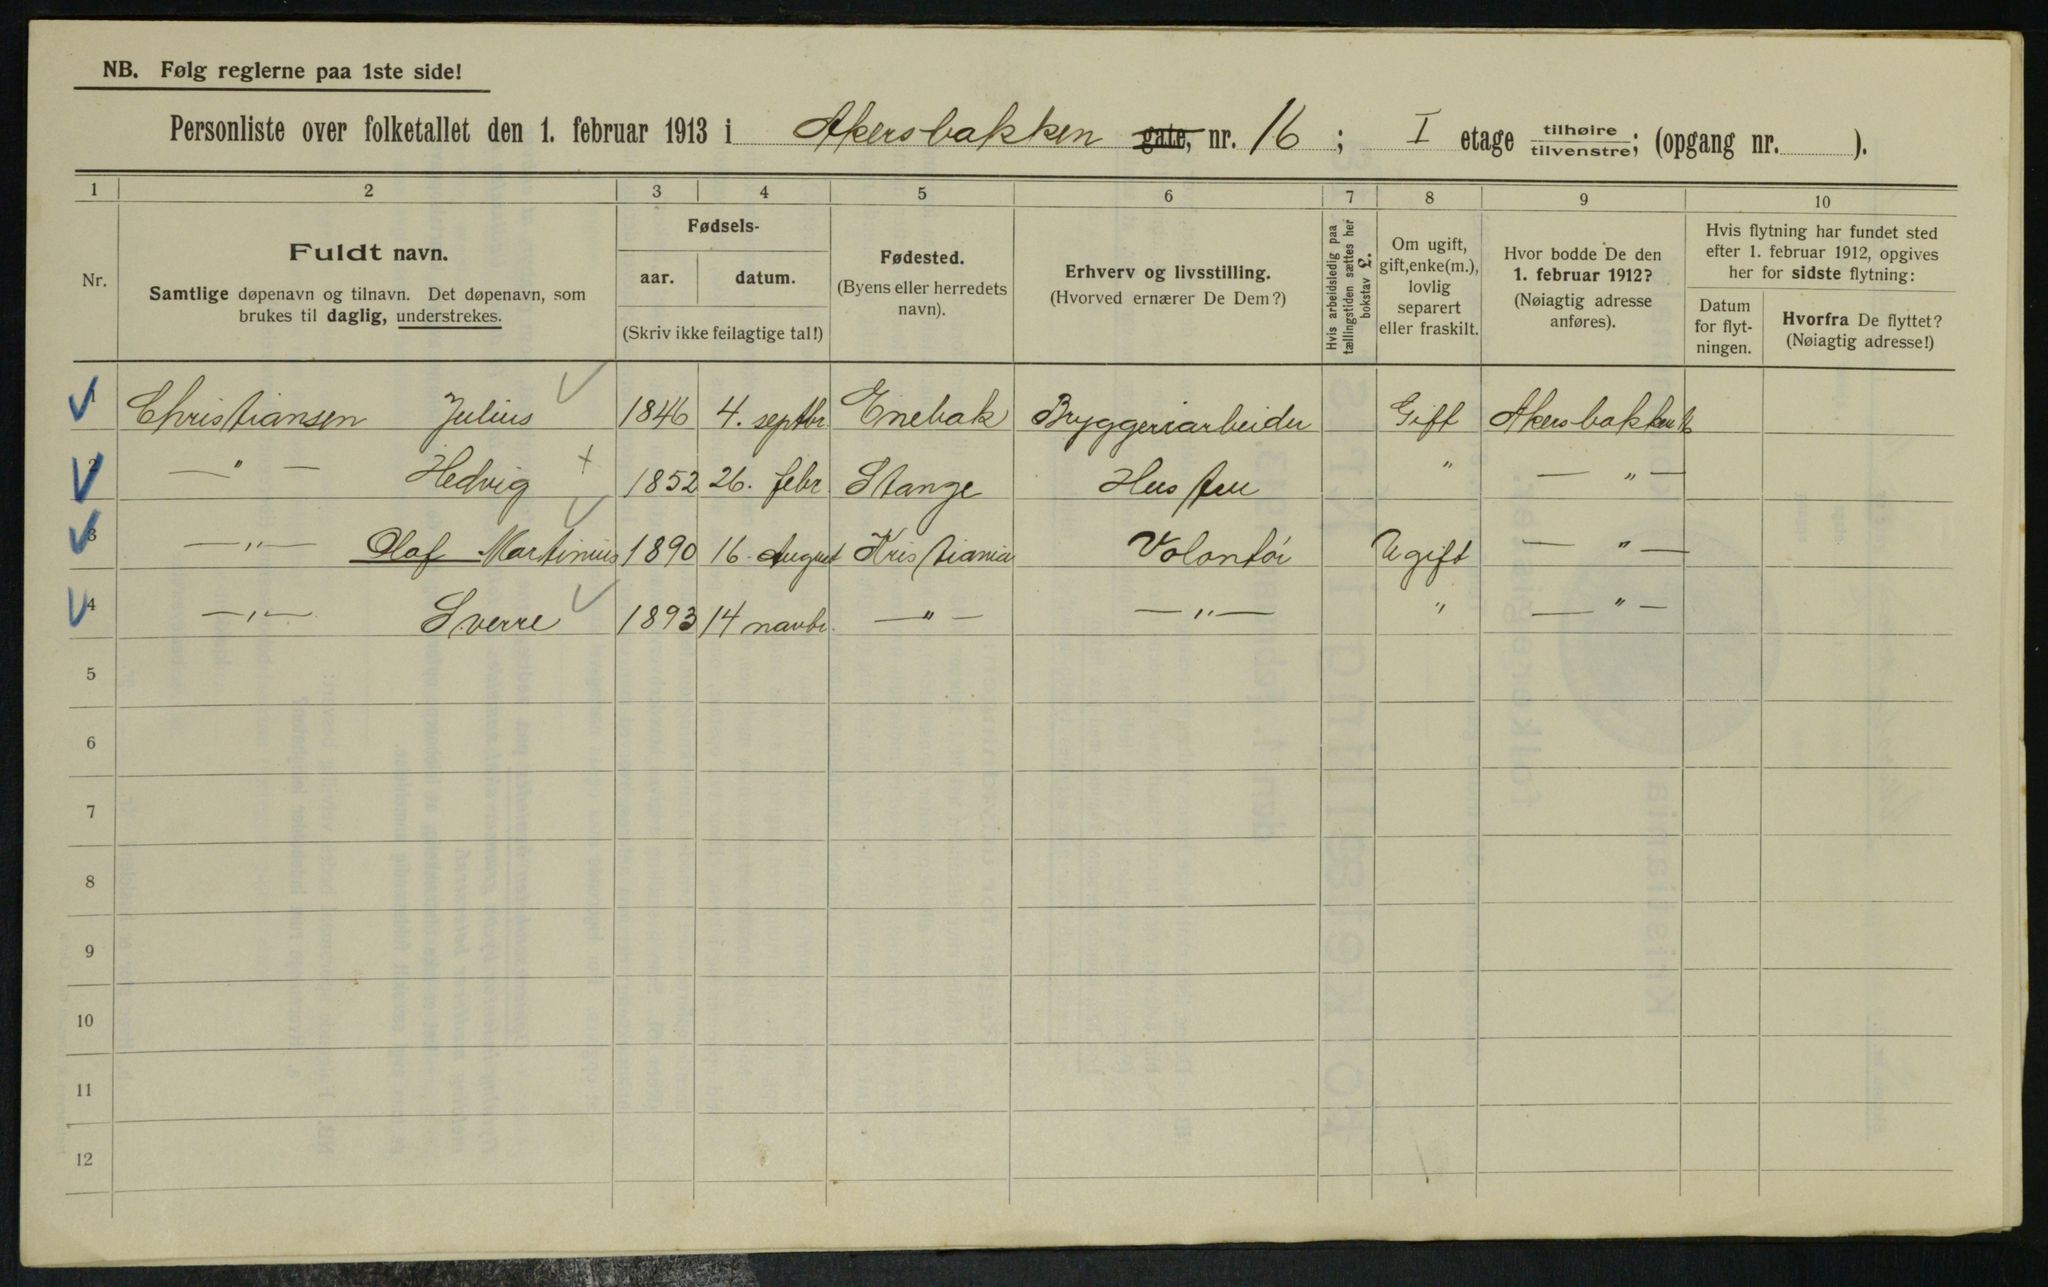 NB. Følg reglerne paa 1ste side!
Personliste over folketallet den 1. februar 1913 i Akersbakken gate, nr. 16 ; I etage tilhøire tilvenstre; (opgang nr. ).
1 2 3 4 5 6 7 8 9 10
Nr.
Fuldt navn.
Samtlige døpenavn og tilnavn. Det døpenavn, som
brukes til daglig, understrekes.
Fødsels-
aar. datum.
(Skriv ikke feilagtige tal!)
Fødested.
(Byens eller herredets
navn).
Erhverv og livsstilling.
(Hvorved ernærer De Dem?)
Hvis arbeidsledig paa
tællingstiden sættes her
bokstav L.
Om ugift,
gift, enke(m.),
lovlig
separert
eller fraskilt.
Hvor bodde De den
1. februar 1912?
(Nøiagtig adresse
anføres).
Hvis flytning har fundet sted
efter 1. februar 1912, opgives
her for sidste flytning:
Datum
for flyt-
ningen.
Hvorfra De flyttet?
(Nøiagtig adresse!)
1 Christiansen Julius 1846 4. septbr Enebak Bryggeriarbeider Gift Akersbakken 16
2 — " — Hedvig 1852 26. febr Stange Hustru " — " —
3 — " — Olaf Martinius 1890 16. august Kristiania Volontör Ugift — " —
4 — " — Sverre 1893 14 novbr. — " — — " — " — " —
5
6
7
8
9
10
11
12